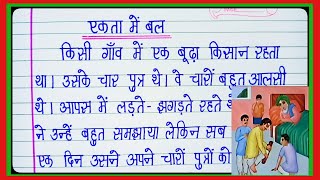 एकता में बल
किसी गाँव में एक बूढ़ा किसान रहता
था। उसके चार पुत्र थे। वे चारों बहुत आलसी
थे। आपस में लड़ते-झगड़ते रहते थे
ने उन्हें बहुत समझाया लेकिन सब
एक दिन उसने अपने चारों पुत्रों को